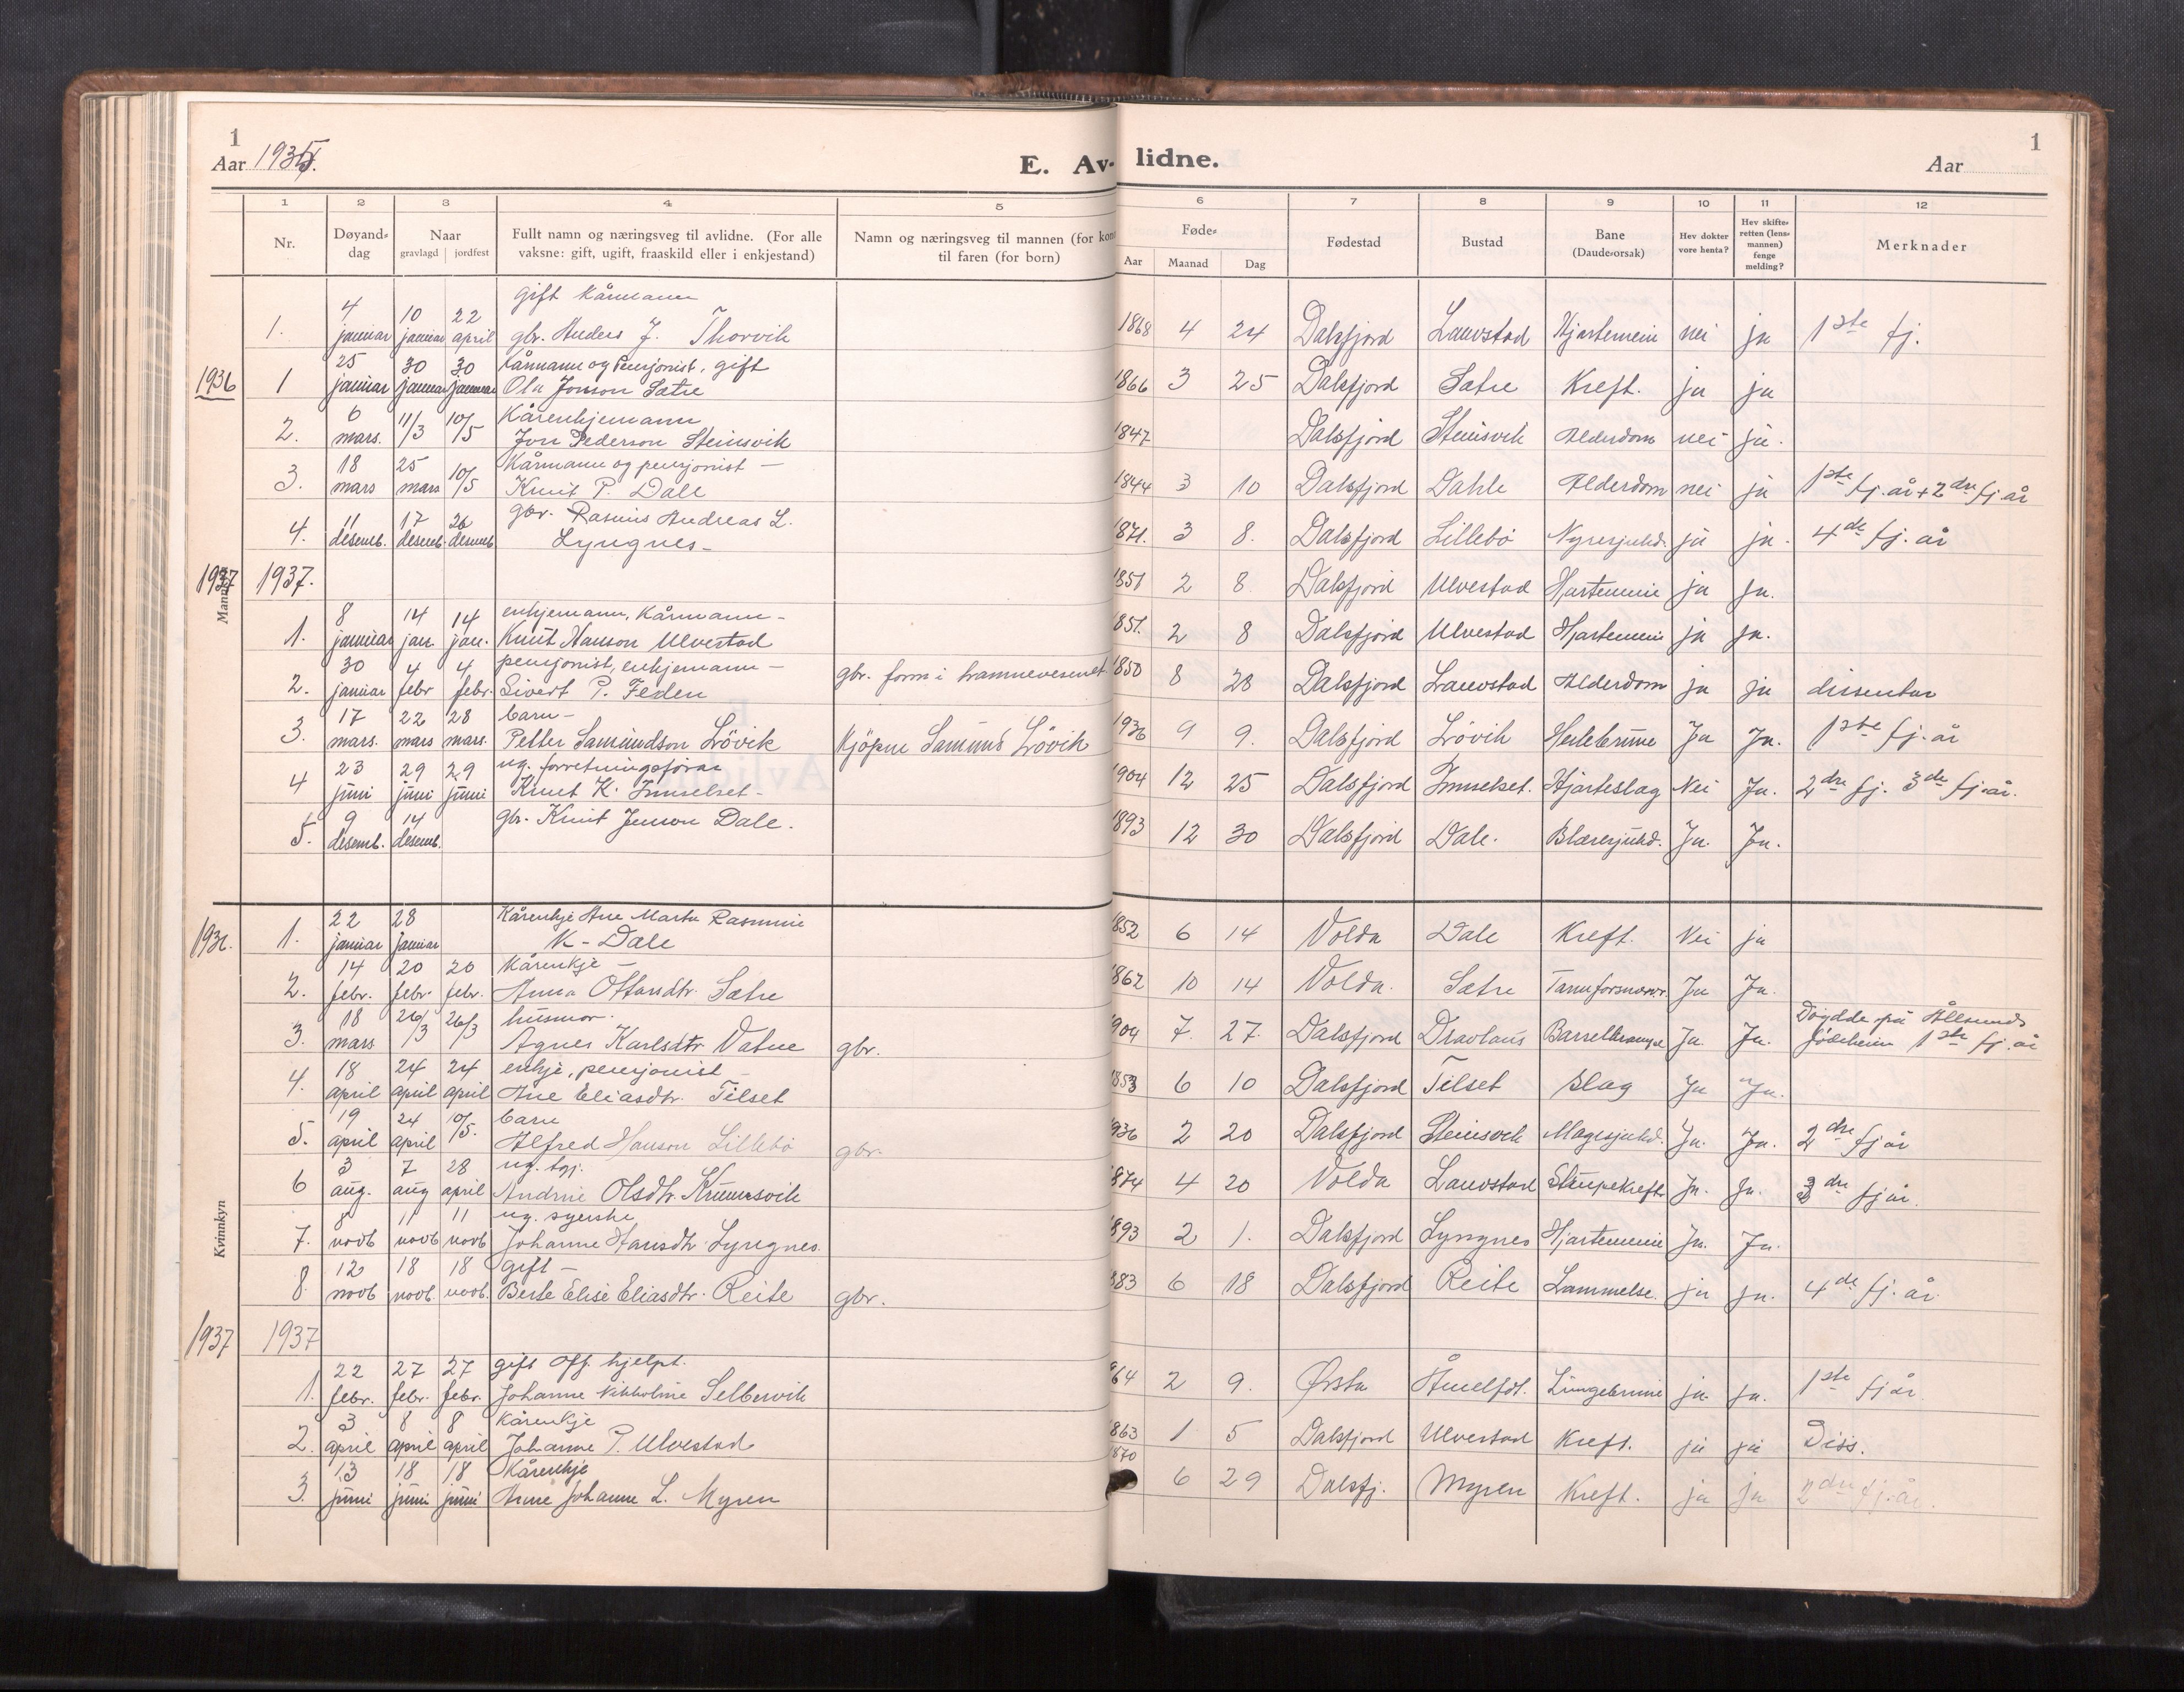 1
Aar 1935.
E. Av-
lidne.
Aar
1
1 2 3 4 5 6 7 8 9 10 11 12
Nr.
Døyand-
dag
Naar
gravlagd jordfest
Fullt namn og næringsveg til avlidne. (For alle
vaksne: gift, ugift, fraaskild eller i enkjestand)
Namn og næringsveg til mannen (for kon
til faren (for born)
Føde-
Aar Maanad Dag
Fødestad
Bustad
Bane
(Daude-orsak)
Hev dokter
vore henta?
Hev skifte-
retten (lens-
mannen)
fenge
melding?
Merknader
4 10 22 gift kårmann
1. januar januar april gbr. Anders J. Thorvik 1868 4 24 Dalsfjord Lauvstad Hjartemein nei ja 1ste fj.
25 30 30 kårmann og pensjonist, gift
1936 1 januar januar januar Ola Jonson Satre 1866 3 25 Dalsfjord Satre Kreft. ja ja
6 11/3 10/5 Kårenkjemann
2. mars. Jon Pederson Steinsvik 1847 Dalsfjord Steinsvik Alderdom nei ja.
18 25 10/5 Kårmann og pensjonist —
3. mars mars Knut P. Dale 1844 3 10 Dalsfjord Dahle Alderdom nei ja 1ste fj. år + 2dre fj. år
11 17 26 gbr. Rasmus Andreas L.
4. desemb. desemb. desemb. Lyngnes - 1871. 3 8. Dalsfjord Lillebö Nyresjukd. ja ja. 4de fj. år
1937 1937. 1851 2 8 Dalsfjord Ulvestad Hjartemein ja ja.
Mannkyn
8 14 14 enkjemann, Kårmann -
1. januar jan. jan. Knut Hanson Ulvestad 1851. 2 8 Dalsfjord Ulvestad Hjartemein ja ja.
30 4 4 pensjonist, enkjemann —
2. januar febr febr. Sivert P. Feden gbr. form i hamnevesenet 1850 8 28 Dalsfjord Lauvstad Alderdom ja ja dissentar
17 22 28 barn -
3. mars. mars mars. Petter Samundson Lövik Kjöpm Samund Lövik 1936 9 9. Dalsfjord Lövik Heilebrune Ja Ja. 1ste fj. år
23 29 29 ug. forretningsförar
4 juni juni juni Knut K. Innselset - 1904 12 25 Dalsfjord Innselset. Hjarteslag Nei Ja. 2dre fj. 3de fj. år.
9 14 gbr. Knut Jenson Dale.
5. desemb. desemb. 1893 12 30 Dalsfjord Dale. Blæresjukd. Ja. Ja.
22 28 Kårenkje Ane Marta Rasmine
1936. 1. januar januar K - Dale 1852 6 14 Volda Dale Kreft. Nei ja
14 20 20 Kårenkje —
2. febr. febr. febr. Anna Ottarsdtr. Satre 1862 10 14 Volda. Satre Tarmforsnævr. Ja Ja.
18 26/3 26/3 husmor.
3. mars Agnes Karlsdtr Vatne gbr. 1904 7. 27. Dalsfjord Dravlaus Barselkrampe Ja Ja. Döydde på Ålesunds
födeheim 1ste fj. år
18 24 24 enkje, pensjonist —
4. april april april Ane Eliasdtr. Tilset 1853 6 10 Dalsfjord Tilset Slag Ja Ja.
19 24 10/5. barn
5. april april Alfred Hanson Lillebö gbr. 1936 2 20 Dalsfjord Steinsvik Magesjukd. Ja. Ja. 2dre fj år
3 7 28 ug. tgj.
6 aug. aug april Andrine Olsdtr. Krumsvik 1874 4 20 Volda Lauvstad Strupekreft Ja. Ja. 3dre fj år.
8 11 11 ug. syerske
7. novb novb novb Johanne Hansdtr. Lyngnes. 1893 2 1. Dalsfjord Lyngnes Hjartemein Ja. Ja.
12 18 18 gift —
8. novb novb. novb. Berte Elise Eliasdtr. Reite gbr. 1883 6 18 Dalsfjord Reite Lammelse. ja ja. 4de fj. år.
Kvinnkyn
1937 1937
22 27 27 gift off. hjelpt.
1. febr. febr. febr. Johanne Nikholine Selbervik 1864 2 9. Ørsta Åmelfot. Lungebrune ja ja. 1ste fj år.
3 8 8 Kårenkje
2. april april april Johanne P. Ulvestad 1863 1 5 Dalsfjord Ulvestad Kreft. ja ja Diss.
13 18 18 Kårenkje 1870
3. juni juni juni Anne Johanne L. Myren 6 29 Dalsfj. Myren Kreft. ja ja 2dre fj. år.